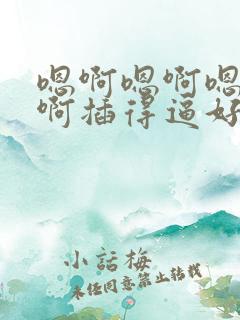 嗯啊嗯啊嗯
啊插得逼好
小話梅
未经同意禁止转载